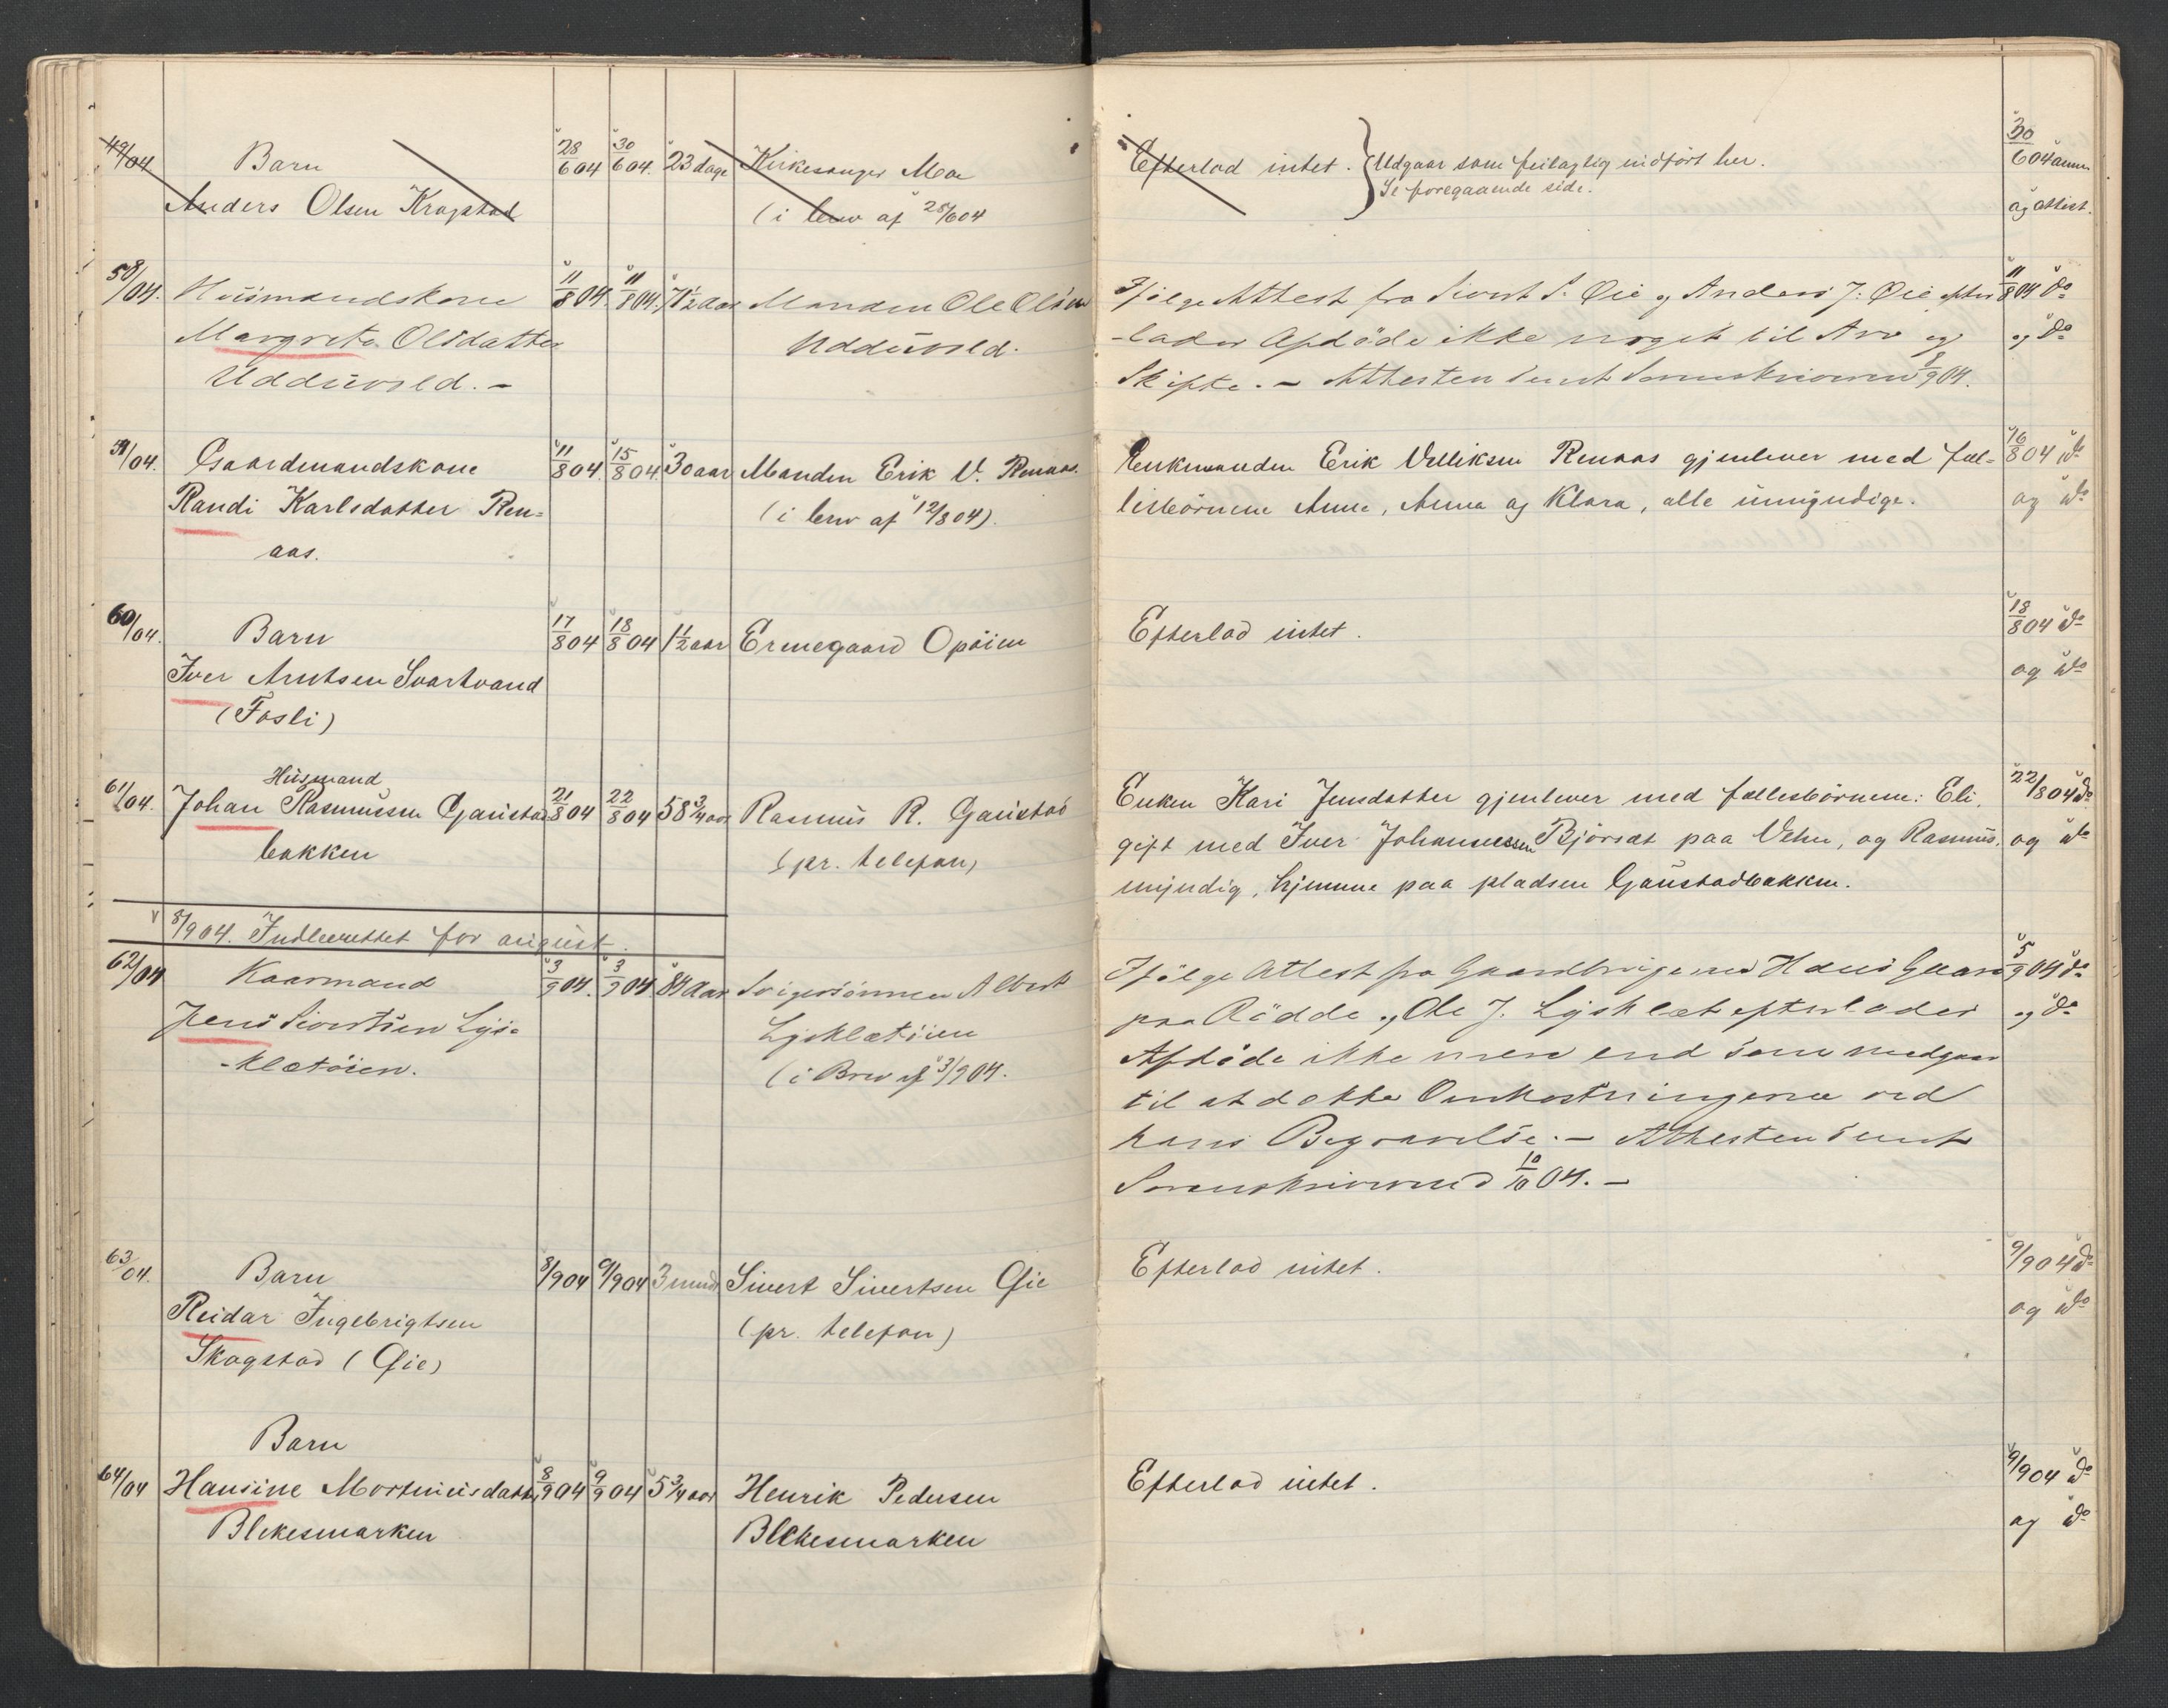 49/04 Barn 28/6 04 30/6 04. 23 dage Kirkesanger Moe Efterlod intet. Udgaar som feilagtig indført her. 30/6 04 anm.
Anders Olsen Kragstad (i brev af 28/6 04 Se foregaaende side. og attest.
58/04. Husmandskone 11/8 04. 11/8 04. 71 1/2 aar Manden Ole Olsen Ifølge Attest fra Sivert S. Øie og Anders J. Øie efter 11/8 04 do
Margreta Olsdatter Udduvold. -lader Afdøde ikke noget til Arv og og do
Udduvold. - Skifte. - Attesten sendt Sorenskriveren 8/9 04.
59/04. Gaardmandskone 11/8 04. 15/8 04. 30 aar Manden Erik V. Renaas. Enkemanden Erik Velliksen Renaas gjenlever med fæl= 16/8 04 do
Randi Karlsdatter Ren= (i brev af 12/8 04). lesbørnene Anne, Anna og Klara, alle umyndige. og do
aas.
60/04. Barn 17/8 04 18/8 04 1 1/2 aar Ermegaard Opøien Efterlod intet. 18/8 04 do
Iver Arntsen Svartvand og do
(Fosli)
Husmand
61/04. Johan Rasmussen Gaustad 21/8 04 22/8 04 58 3/4 aar Rasmus R. Gaustad Enken Kari Jensdatter gjenlever med fællesbørnene: Eli, 22/8 04 do
bakken (pr. telefon) gift med Iver Johannessen Bjørset paa Vehn, og Rasmus, og do
umyndig, hjemme paa pladsen Gaustadbakken.
5/9 04. Indberettet for august.
62/04 Kaarmand 3/9 04. 3/9 04 84 Aar Svigersønnen Albert Ifølge Attest fra Gaardbrugerne Hans Gaare 5/9 04 do
Jens Sivertsen Lys= Lysklætøien paa Rødde og Ole J. Lysklæt efterlader og do
-klætøien. (i Brev af 3/9 04. Afdøde ikke mere end som medgaar
til at dække Omkostningerne ved
hans Begravelse. - Attesten sendt
Sorenskriveren 10/10 04. -
63/04. Barn 8/9 04 9/9 04 3 mnd. Sivert Sivertsen Øie Efterlod intet. 9/9 04 do
Reidar Ingebrigtsen (pr. telefon) og do
Skogstad (Øie)
Barn
64/04 Hansine Mortinusdatter 8/9 04 9/9 04 5 3/4 aar Henrik Pedersen Efterlod intet. 9/9 04 do
Blekesmarken Blekesmarken og do